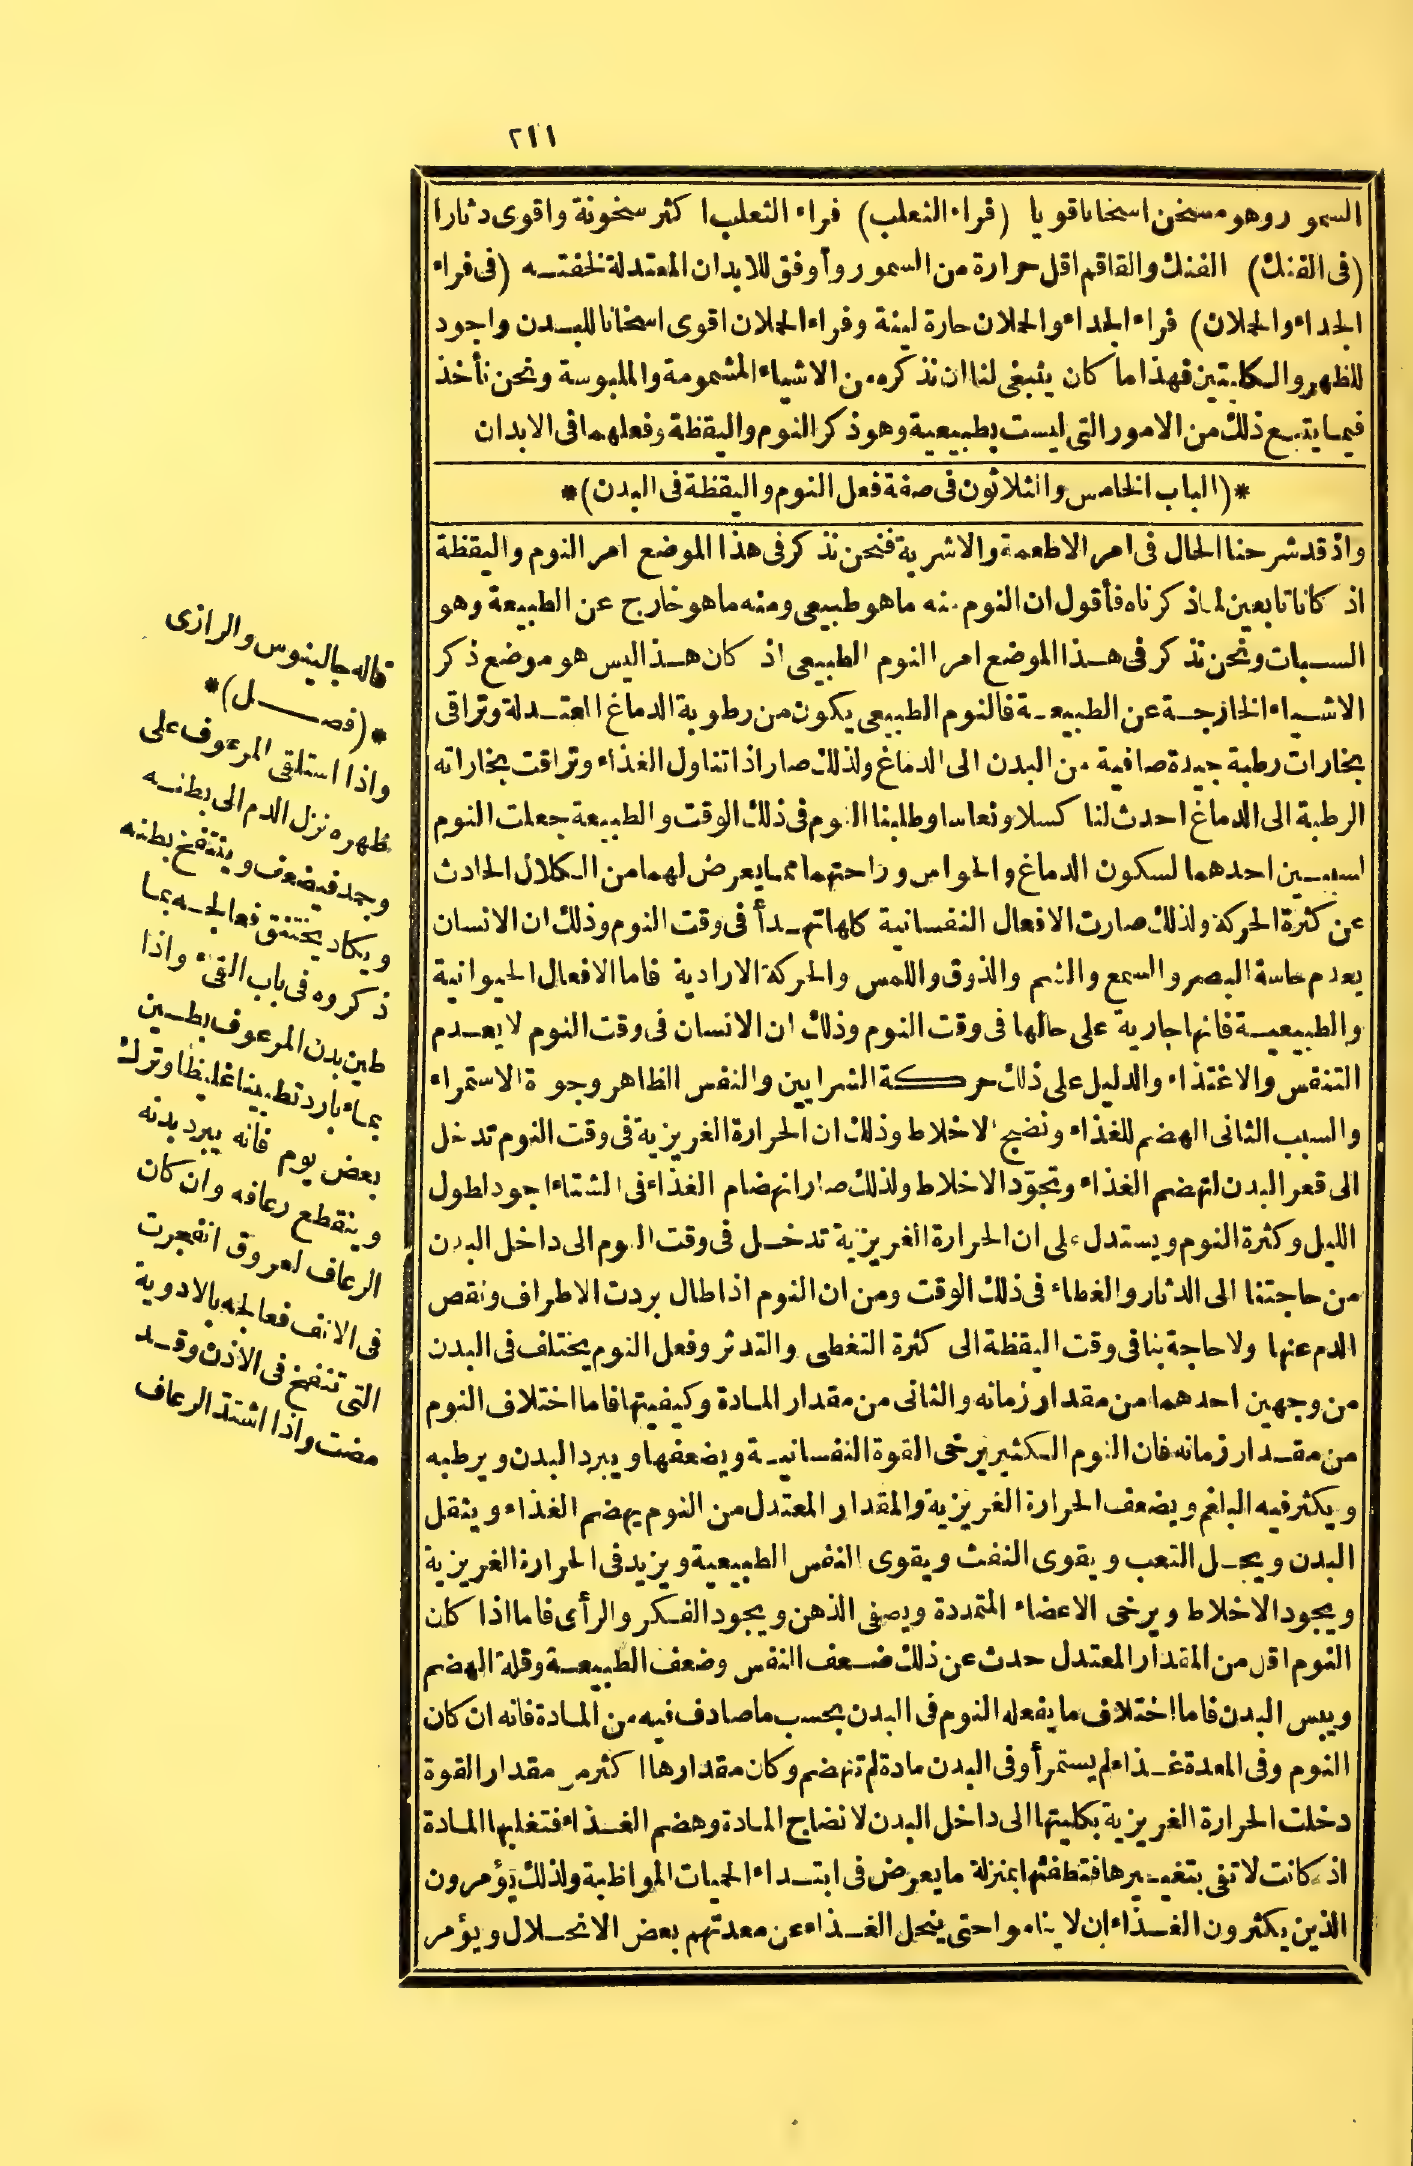 ٢١١
السمور وهو مسخن اسخانا قويا (فراء الثعلب) فراء الثعلب اكثر سخونة واقوى دثارا
(فى الفنك) الفنك والقاقم اقل حرارة من السمور وأوفق للابدان المعتدلة لخفته (فى فراء
الجداء والحملان) فراء الجداء والحملان حارة لينة وفراء الحملان اقوى اسخانا للبدن واجود
للظهر والكليتين فهذا ما كان ينبغى لنا ان نذكره من الاشياء المشمومة والملبوسة ونحن نأخذ
فيما يتبع ذلك من الامور التى ليست بطبيعية وهو ذكر النوم واليقظة وفعلهما فى الابدان
*(الباب الخامس والثلاثون فى صفة فعل النوم واليقظة فى البدن)*
واذ قد شرحنا الحال فى امر الاطعمة والاشربة فنحن نذكر فى هذا الموضع امر النوم واليقظة
اذ كانا تابعين لما ذكرناه فأقول ان النوم منه ما هو طبيعى ومنه ما هو خارج عن الطبيعة وهو
السبات ونحن نذكر فى هذا الموضع امر النوم الطبيعى اذ كان هذا ليس هو موضع ذكر
الاشياء الخارجة عن الطبيعة فالنوم الطبيعى يكون من رطوبة الدماغ المعتدلة وتراقى
بخارات رطبة جيدة صافية من البدن الى الدماغ ولذلك صار اذا تناول الغذاء وتراقت بخاراته
الرطبة الى الدماغ احدث لنا كسلا ونعاسا وطلبنا النوم فى ذلك الوقت والطبيعة جعلت النوم
لسببين احدهما لسكون الدماغ والحواس وراحتهما مما يعرض لهما من الكلال الحادث
عن كثرة الحركة ولذلك صارت الافعال النفسانية كلها تهدأ فى وقت النوم وذلك ان الانسان
يعدم حاسة البصر والسمع والشم والذوق واللمس والحركة الارادية فاما الافعال الحيوانية
والطبيعية فانها جارية على حالها فى وقت النوم وذلك ان الانسان فى وقت النوم لا يعدم
التنفس والاغتذاء والدليل على ذلك حركة الشرايين والنفس الظاهر وجودة الاستمراء
والسبب الثانى الهضم للغذاء ونضج الاخلاط وذلك ان الحرارة الغريزية فى وقت النوم تدخل
الى قعر البدن لتهضم الغذاء وتجوّد الاخلاط ولذلك صار انهضام الغذاء فى الشتاء اجود لطول
الليل وكثرة النوم ويستدل على ان الحرارة الغريزية تدخل فى وقت النوم الى داخل البدن
من حاجتنا الى الدثار والغطاء فى ذلك الوقت ومن ان النوم اذا طال بردت الاطراف ونقص
الدم عنها ولا حاجة بنا فى وقت اليقظة الى كثرة التغطى والتدثر وفعل النوم يختلف فى البدن
من وجهين احدهما من مقدار زمانه والثانى من مقدار المادة وكيفيتها فاما اختلاف النوم
من مقدار زمانه فان النوم الكثير يرخى القوة النفسانية ويضعفها ويبرد البدن ويرطبه
ويكثر فيه البلغم ويضعف الحرارة الغريزية والمقدار المعتدل من النوم يهضم الغذاء وينقل
البدن ويحل التعب ويقوى النفث ويقوى النفس الطبيعية ويزيد فى الحرارة الغريزية
ويجود الاخلاط ويرخى الاعضاء المتمددة ويصفى الذهن ويجود الفكر والرأى فاما اذا كان
النوم اقل من المقدار المعتدل حدث عن ذلك ضعف النفس وضعف الطبيعة وقلة الهضم
ويبس البدن فاما اختلاف ما يفعله النوم فى البدن بحسب ما صادف فيه من المادة فانه ان كان
النوم وفى المعدة غذاء لم يستمرأ وفى البدن مادة لم تنهضم وكان مقدارها اكثر من مقدار القوة
دخلت الحرارة الغريزية بكليتها الى داخل البدن لانضاج المادة وهضم الغذاء فتغلبها المادة
اذ كانت لا تفى بتغييرها فتطفئها بمنزلة ما يعرض فى ابتداء الحميات المواظبة ولذلك يؤمرون
الذين يكثرون الغذاء ان لا يناموا حتى ينحل الغذاء عن معدتهم بعض الانحلال ويؤمر
قاله جالينوس والرازى
*(فصل)*
واذا استلقى المرعوف على
ظهره نزل الدم الى بطنه
وجمد فيضعف وينتفخ بطنه
ويكاد يختنق فعالجه بما
ذكروه فى باب القىء واذا
طين بدن المرعوف بطين
بماء بارد تطيينا غليظا وترك
بعض يوم فانه يبرد بدنه
وينقطع رعافه وان كان
الرعاف لعروق انفجرت
فى الانف فعالجه بالادوية
التى تنفخ فى الاذن وقد
مضت واذا اشتد الرعاف